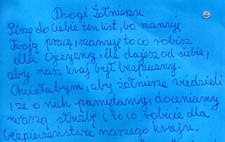 Drogi Żołnierzu
Piszę do Ciebie ten list, bo szanuję
Twoją pracę, szanuję to co robisz
dla Ojczyzny, ile dajesz od siebie,
aby nasz kraj był bezpieczny.
Chciałabym, aby żołnierze wiedzieli
że o nich pamiętamy, doceniamy
waszą służbę i to co robicie dla
bezpieczeństwa naszego kraju.